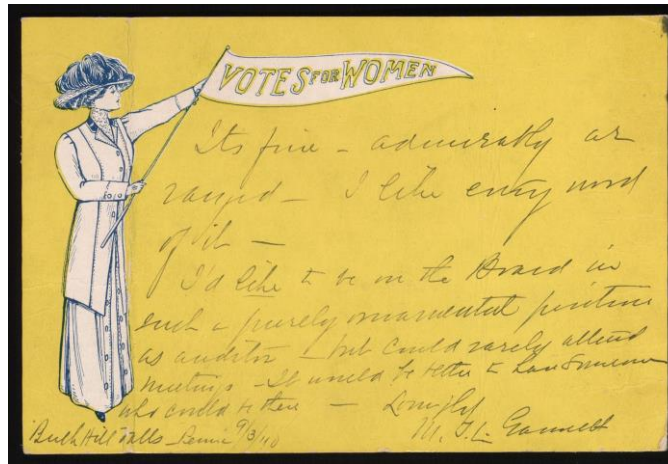 VOTES FOR WOMEN
Its fine - admirably ar
ranged - I like every word
of it -
I'd like to be on the Board in
such a purely ornamental position
as auditor - but could rarely attend
meetings - It would be better to have someone
who could be there - Lovingly
M. T. L. Gannett
Bush Hill Falls - Penna 9/3/10